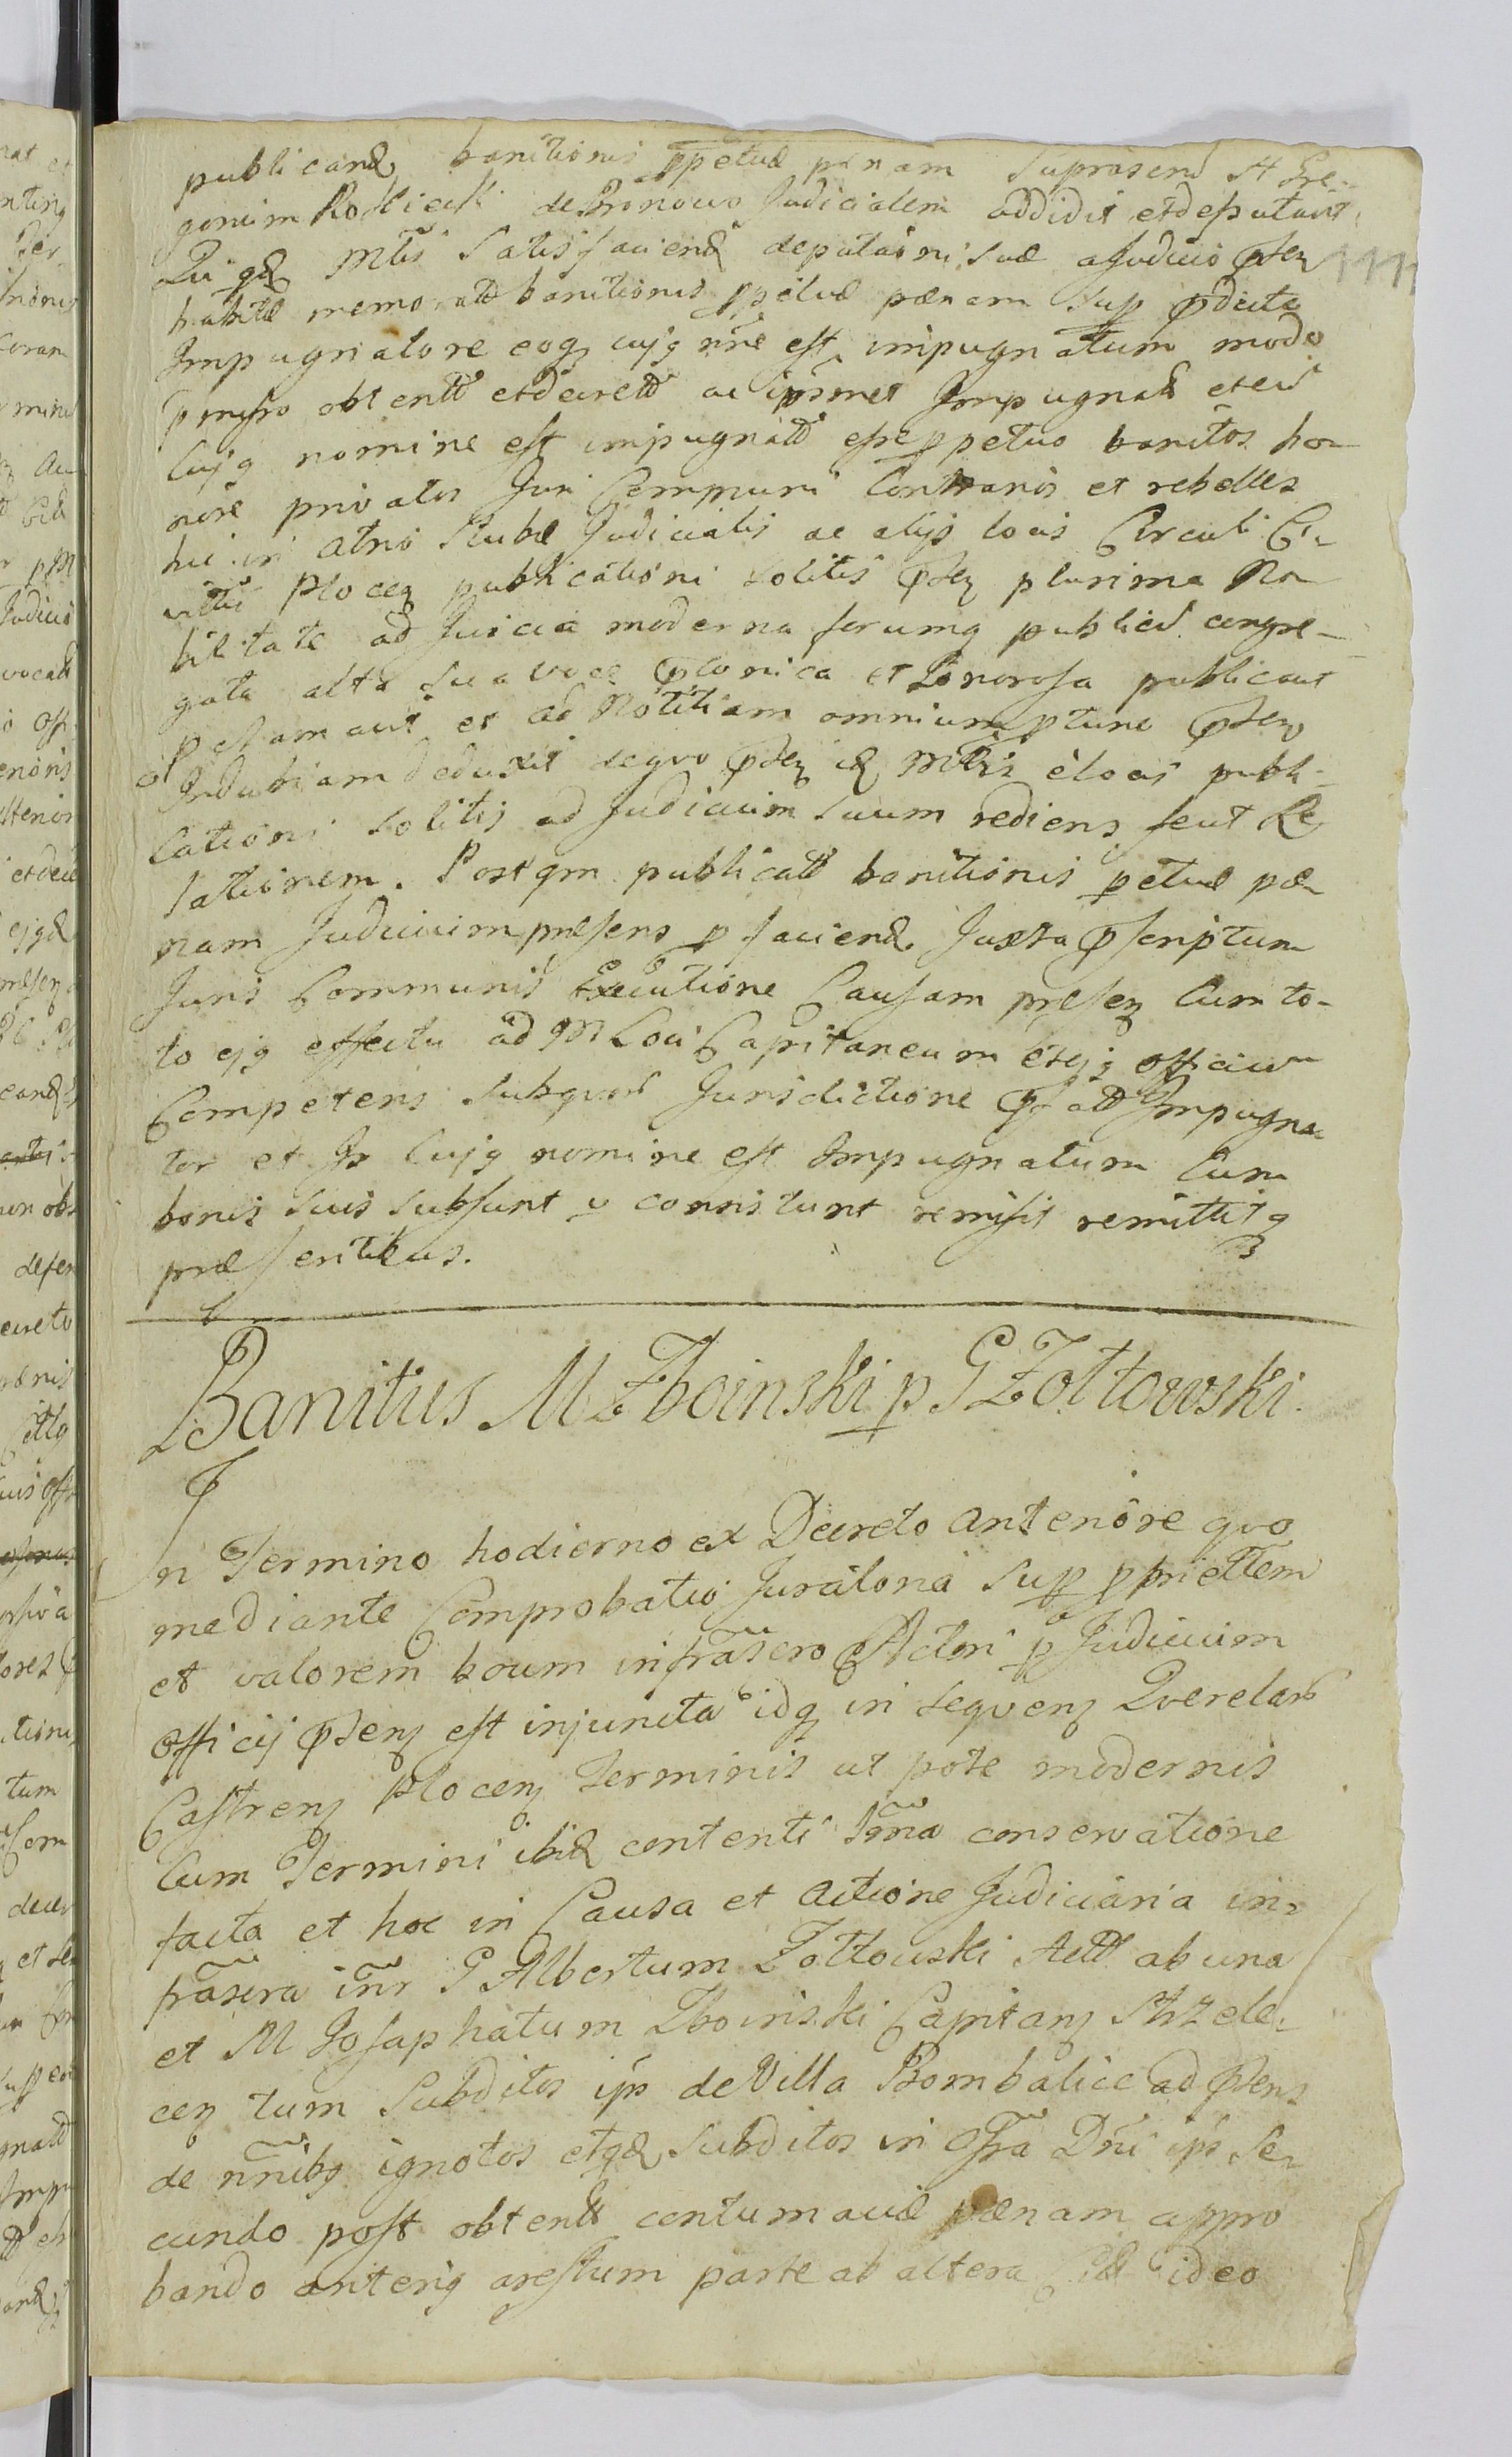 publicand banitionis ppetuæ pænam suprascri M Gre-
gorium Rościcki de Bronowo Judicialem addidit et deputavit
Qui qd Mtis satisfaciend deputaōni suæ a Judicio pden
habitæ memoratæ banitionis ppetuæ pænam sup pdicto
Impugnatore eoq cujq nne est impugnatum modo
pmisso obtentt et decrett ac ipsmet Impugnatt et eū
Cujq nomine est impugnatt esse ppetuo banitos ho-
nore privatos Juri Communi Contrarios et rebelles
hic in atrio stubæ Judicialis ac alijs locis Circuli Ci-
vittis Plocen publicationi solitis pden plurima No-
bilitate ad Juicia moderna forumq publicū congre-
gata alta sua voce plonica et Sonorosa publicavit
pclamavit et ad Notitiam omnium ptunc pden
Indubiam deduxit de quo pden id Mtris è locis publi-
cationi solitis ad Judicium suum rediens fecit Re-
lationem. Postqm publicatt banitionis ppetuæ pæ-
nam Judicium præsens p faciend Juxta pscriptum
Juris Communis Executione Causam præsen Cum to-
to ejq effectu ad M Loci Capitaneum et ejq officium
Competens sub quorū Jurisdictione pfatt Impugna-
tor et Is Cujq nomine est Impugnatum Cum
bonis suis subsunt v consistunt remisit remittitq
præsentibus.
Banitus M Zboinski p G Zołtowski.
In Termino hodierno ex Decreto anteriore quo
mediante Comprobatio Juratoria sup pprietttem
et valorem boum infrascro Actori p Judicium
Officij pdens est injuncta idq in sequens Querelarū
Castrens Plocens Terminis ut pote modernis
Cum Termini ibid contenti sgna conservatione
facta et hoc in Causa et actione Judiciaria in-
frascra intr G Albertum Zołtowski Actt ab una
et M Josaphatum Zboinski Capitans Strzele-
cen tum Subditos ips de Villa Bombalice ad pdens
de nnibq ignotos et qd subditos in assa Dni ips se-
cundo post obtentt contumaciæ pænam appro
bando anteriq arestum parte ab altera ideo